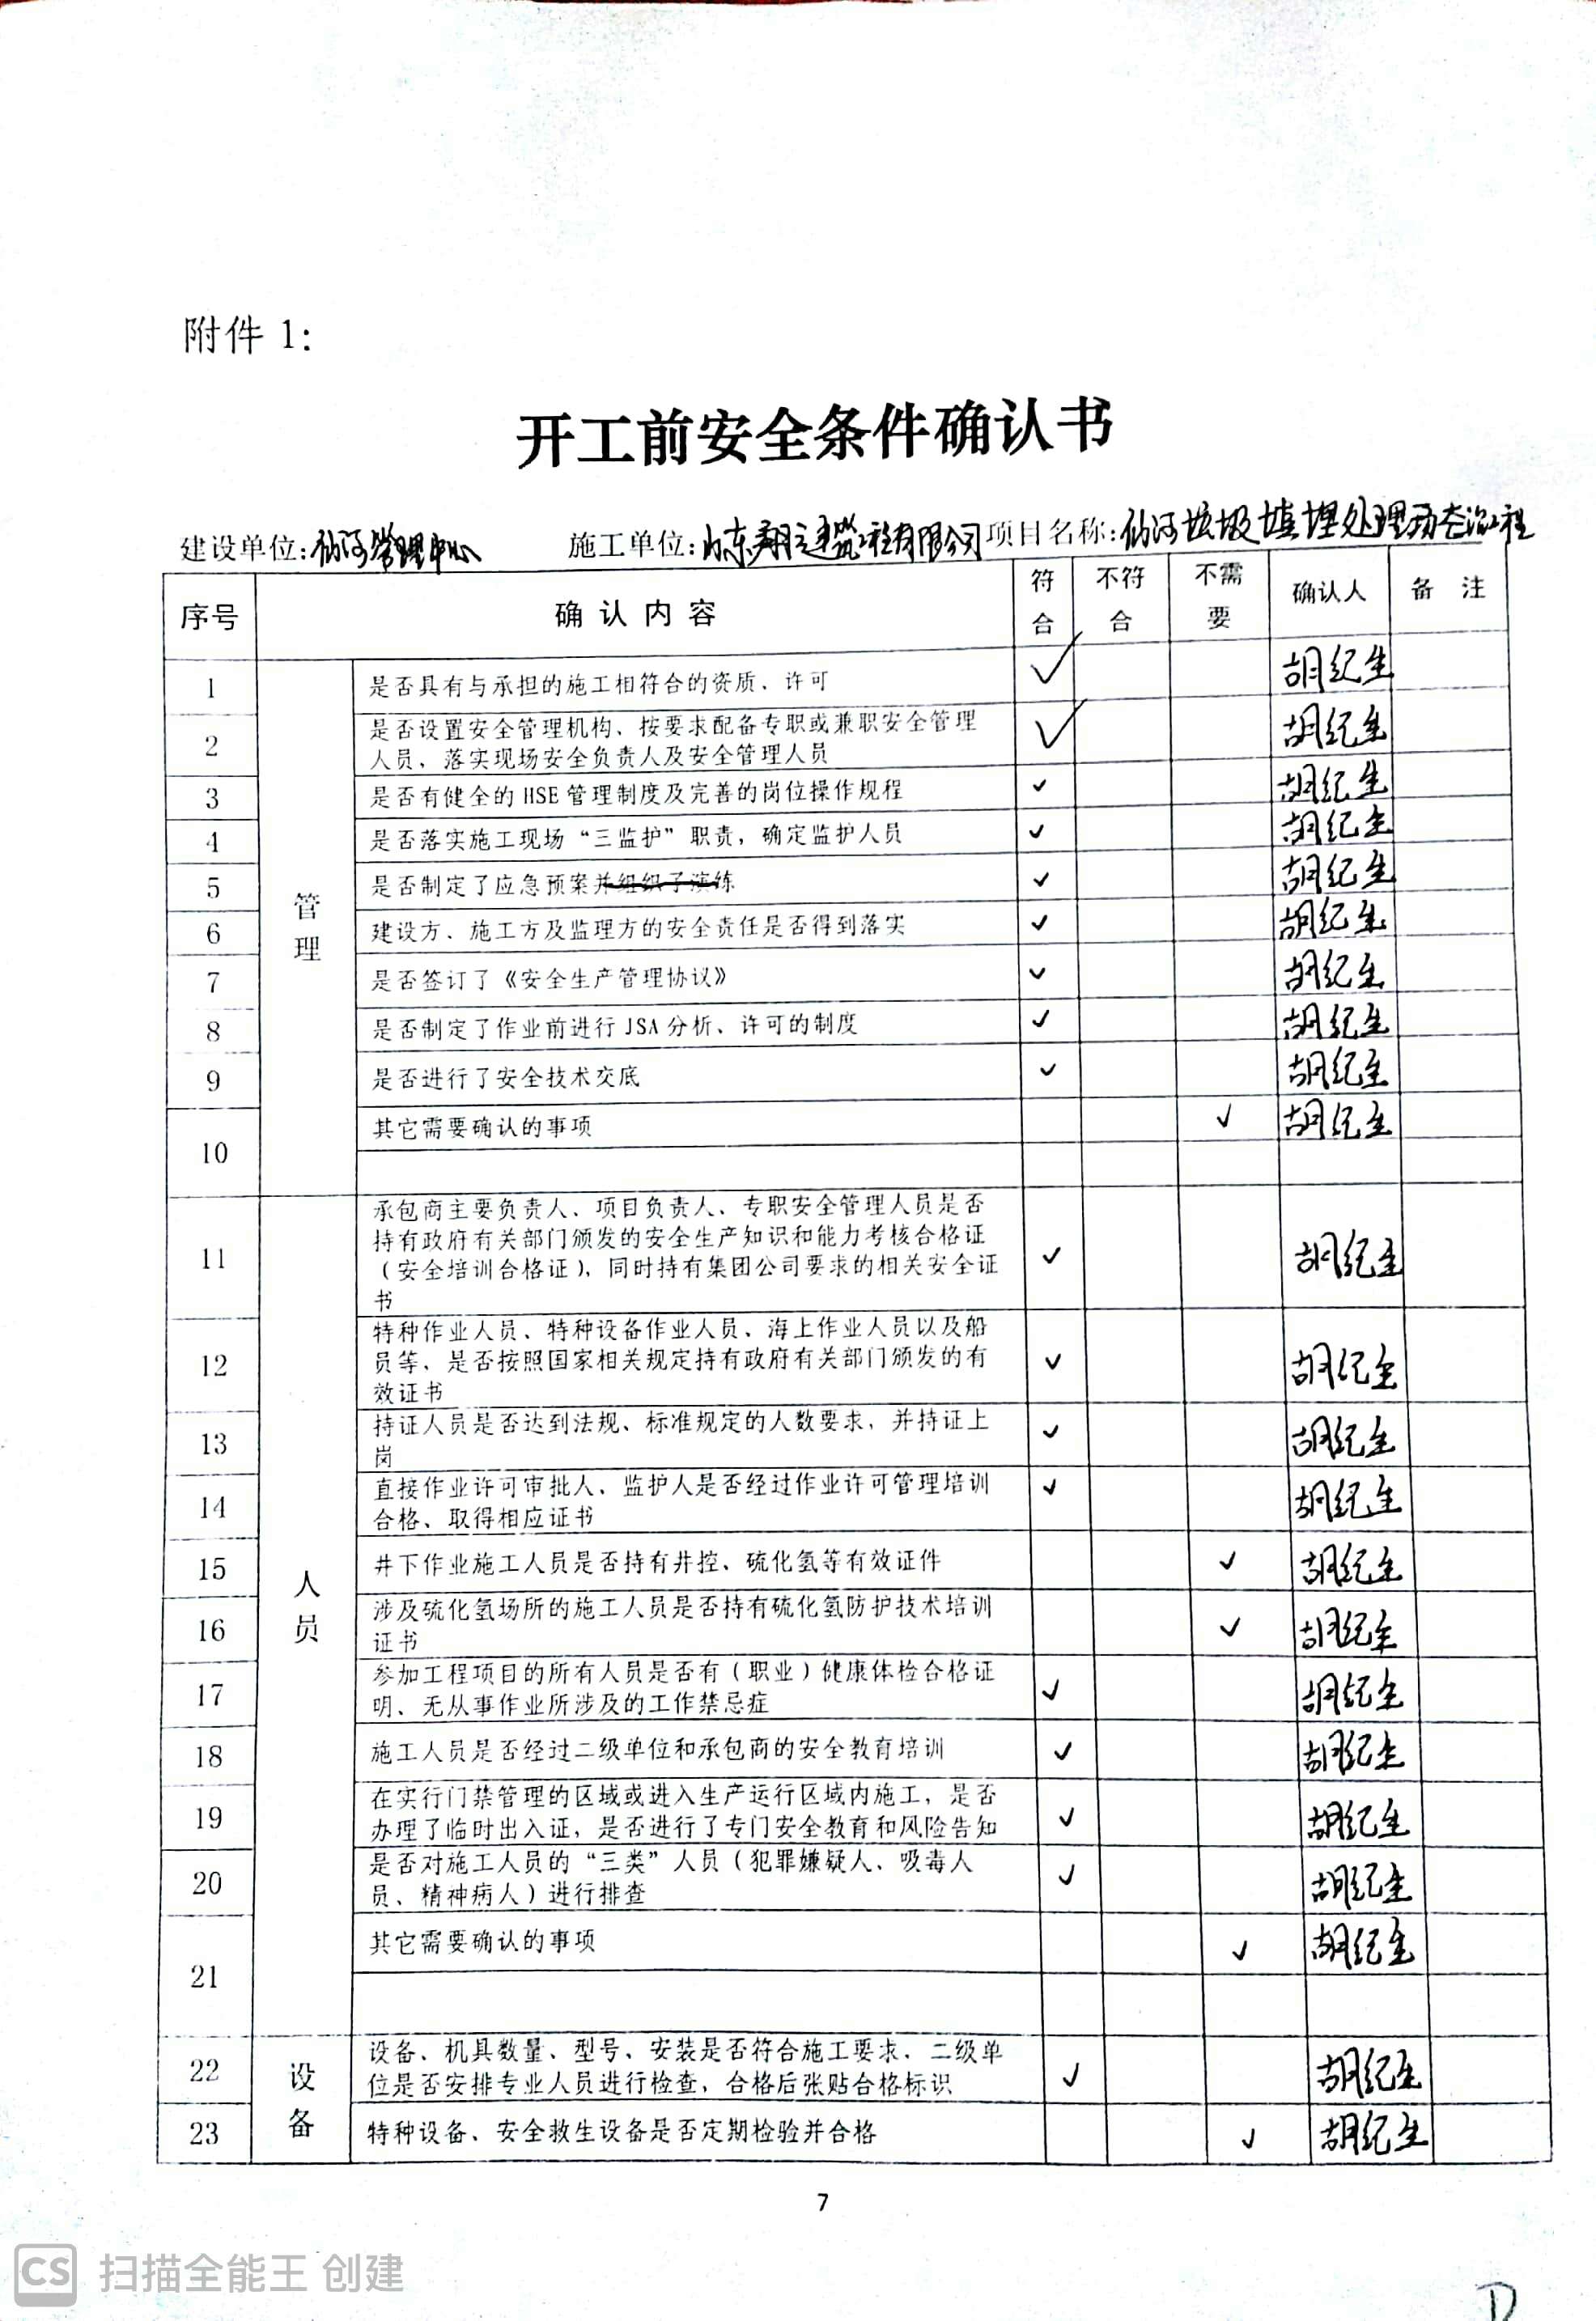 附件 1:
开工前安全条件确认书
建设单位:仙河管理中心 施工单位:山东翔远建筑工程有限公司 项目名称:仙河垃圾填埋处理场治理工程
序号 确 认 内 容 符合 不符合 不需要 确认人 备 注
管理
1 是否具有与承担的施工相符合的资质、许可 ✓ 胡纪生
2 是否设置安全管理机构、按要求配备专职或兼职安全管理
人员,落实现场安全负责人及安全管理人员 ✓ 胡纪生
3 是否有健全的 HSE 管理制度及完善的岗位操作规程 ✓ 胡纪生
4 是否落实施工现场“三监护”职责,确定监护人员 ✓ 胡纪生
5 是否制定了应急预案并组织了演练 ✓ 胡纪生
6 建设方、施工方及监理方的安全责任是否得到落实 ✓ 胡纪生
7 是否签订了《安全生产管理协议》 ✓ 胡纪生
8 是否制定了作业前进行 JSA 分析、许可的制度 ✓ 胡纪生
9 是否进行了安全技术交底 ✓ 胡纪生
10 其它需要确认的事项 ✓ 胡纪生
人员
11 承包商主要负责人、项目负责人、专职安全管理人员是否
持有政府有关部门颁发的安全生产知识和能力考核合格证
(安全培训合格证),同时持有集团公司要求的相关安全证
书 ✓ 胡纪生
12 特种作业人员、特种设备作业人员、海上作业人员以及船
员等,是否按照国家相关规定持有政府有关部门颁发的有
效证书 ✓ 胡纪生
13 持证人员是否达到法规、标准规定的人数要求,并持证上
岗 ✓ 胡纪生
14 直接作业许可审批人、监护人是否经过作业许可管理培训
合格、取得相应证书 ✓ 胡纪生
15 井下作业施工人员是否持有井控、硫化氢等有效证件 ✓ 胡纪生
16 涉及硫化氢场所的施工人员是否持有硫化氢防护技术培训
证书 ✓ 胡纪生
17 参加工程项目的所有人员是否有(职业)健康体检合格证
明、无从事作业所涉及的工作禁忌症 ✓ 胡纪生
18 施工人员是否经过二级单位和承包商的安全教育培训 ✓ 胡纪生
19 在实行门禁管理的区域或进入生产运行区域内施工,是否
办理了临时出入证,是否进行了专门安全教育和风险告知 ✓ 胡纪生
20 是否对施工人员的“三类”人员(犯罪嫌疑人、吸毒人
员、精神病人)进行排查 ✓ 胡纪生
21 其它需要确认的事项 ✓ 胡纪生
设备
22 设备、机具数量、型号、安装是否符合施工要求,二级单
位是否安排专业人员进行检查,合格后张贴合格标识 ✓ 胡纪生
23 特种设备、安全救生设备是否定期检验并合格 ✓ 胡纪生
7
CS 扫描全能王 创建